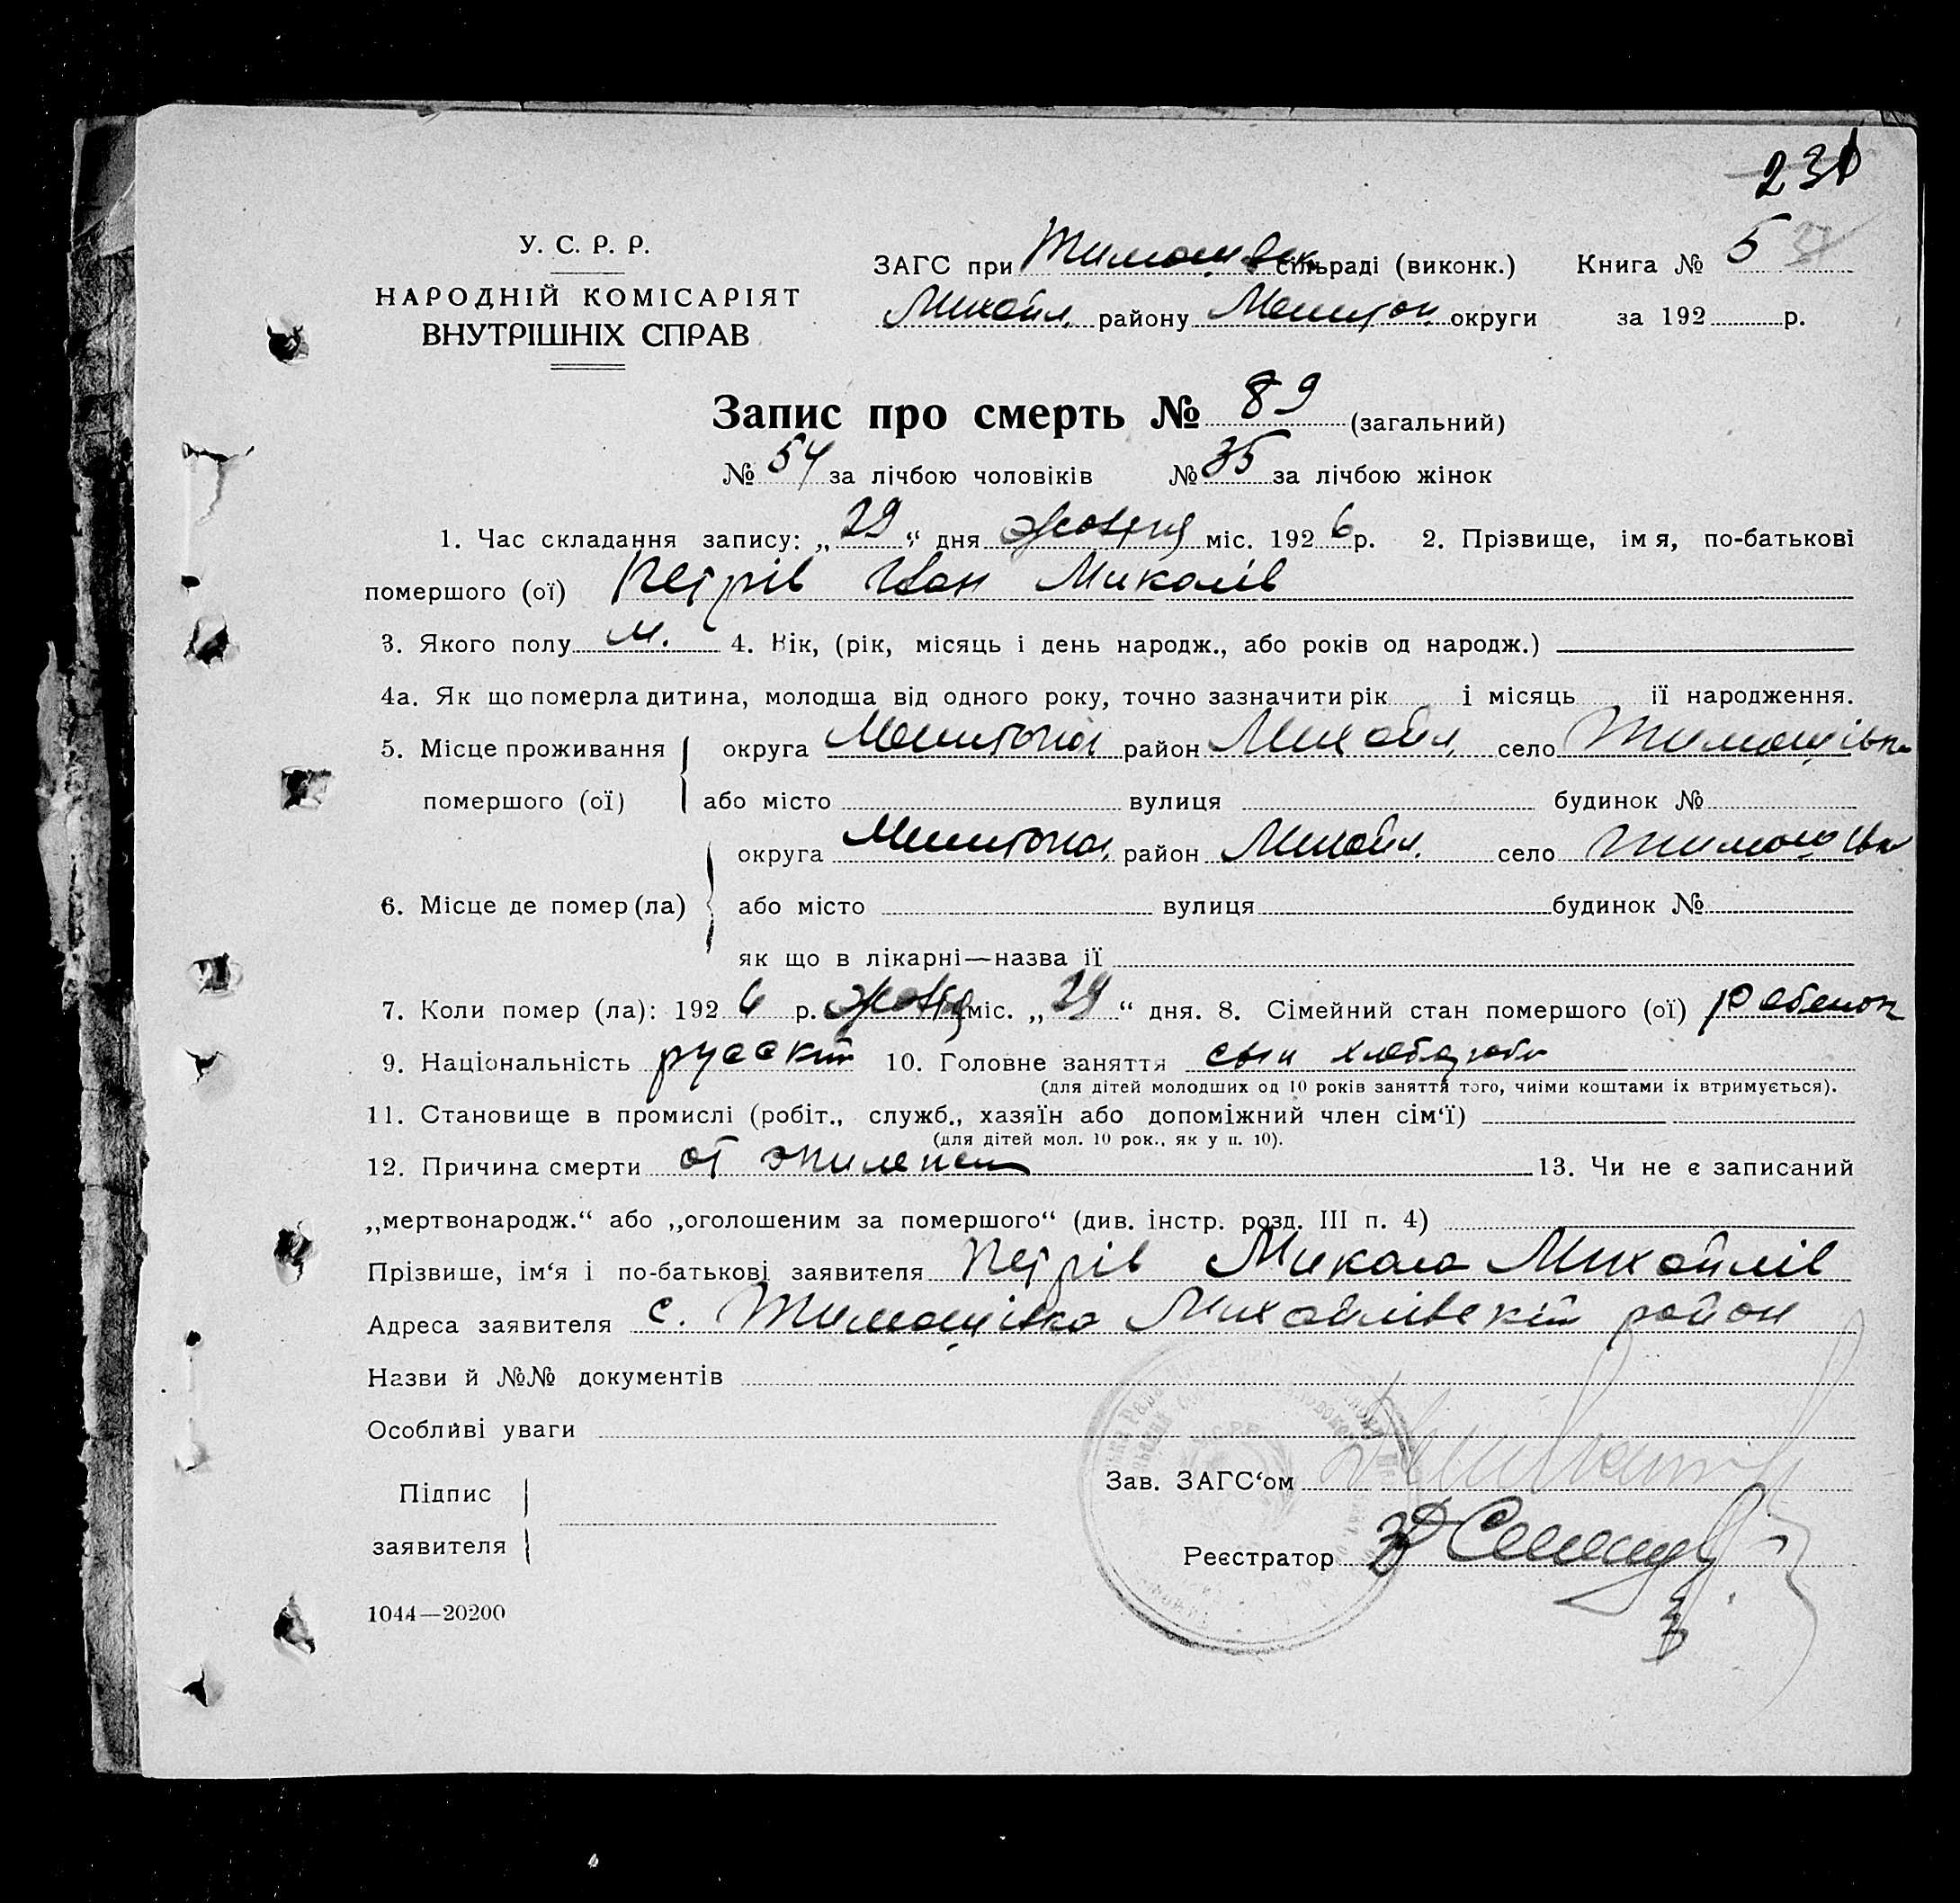 231
У. С. Р. Р.
НАРОДНІЙ КОМІСАРІЯТ
ВНУТРІШНІХ СПРАВ
ЗАГС при Тимошівск сільраді (виконк.) Книга № 5
Михайл. району Мелитоп. округи за 192 р.
Запис про смерть № 89 (загальний)
№ 54 за лічбою чоловіків № 35 за лічбою жінок
1. Час складання запису: „29“ дня жовтня міс. 1926 р. 2. Прізвище, імя, по-батькові
помершого (ої) Петрів Іван Миколів
3. Якого полу м. 4. Вік, (рік, місяць і день народж., або років од народж.)
4а. Як що померла дитина, молодша від одного року, точно зазначити рік і місяць ії народження.
5. Місце проживання помершого (ої) округа Мелитопол район Михайл. село Тимошівка
або місто вулиця будинок №
6. Місце де помер (ла) округа Мелитопол. район Михайл. село Тимошівка
або місто вулиця будинок №
як що в лікарні—назва ії
7. Коли помер (ла): 1926 р. жовтня міс. „29“ дня. 8. Сімейний стан помершого (ої) ребенок
9. Національність русский 10. Головне заняття сын хлебороба
(для дітей молодших од 10 років заняття того, чиіми коштами іх втримується).
11. Становище в промислі (робіт., служб., хазяїн або допоміжний член сім‘ї)
(для дітей мол. 10 рок., як у п. 10).
12. Причина смерти от эпилепсии 13. Чи не є записаний
„мертвонародж.“ або „оголошеним за помершого“ (див. інстр. розд. III п. 4)
Прізвише, ім‘я і по-батькові заявителя Петрів Микола Михайлів
Адреса заявителя с. Тимошівка Михайлівский район
Назви й №№ документів
Особливі уваги
Підпис
заявителя
Зав. ЗАГС‘ом
Реєстратор
1044—20200